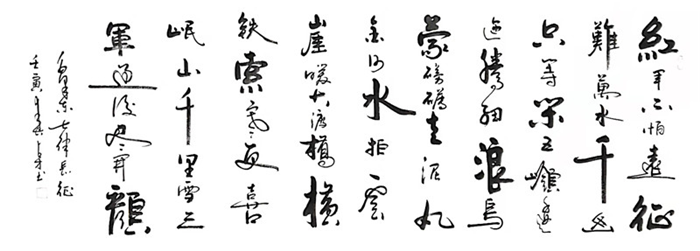 紅軍不怕遠征
難萬水千山
只等閑五嶺逶
迤騰細浪烏
蒙磅礴走泥丸
金沙水拍雲
崖暖大渡橋橫
鉄索寒更喜
岷山千里雪三
軍過後盡開顏
毛泽东七律长征
壬寅年